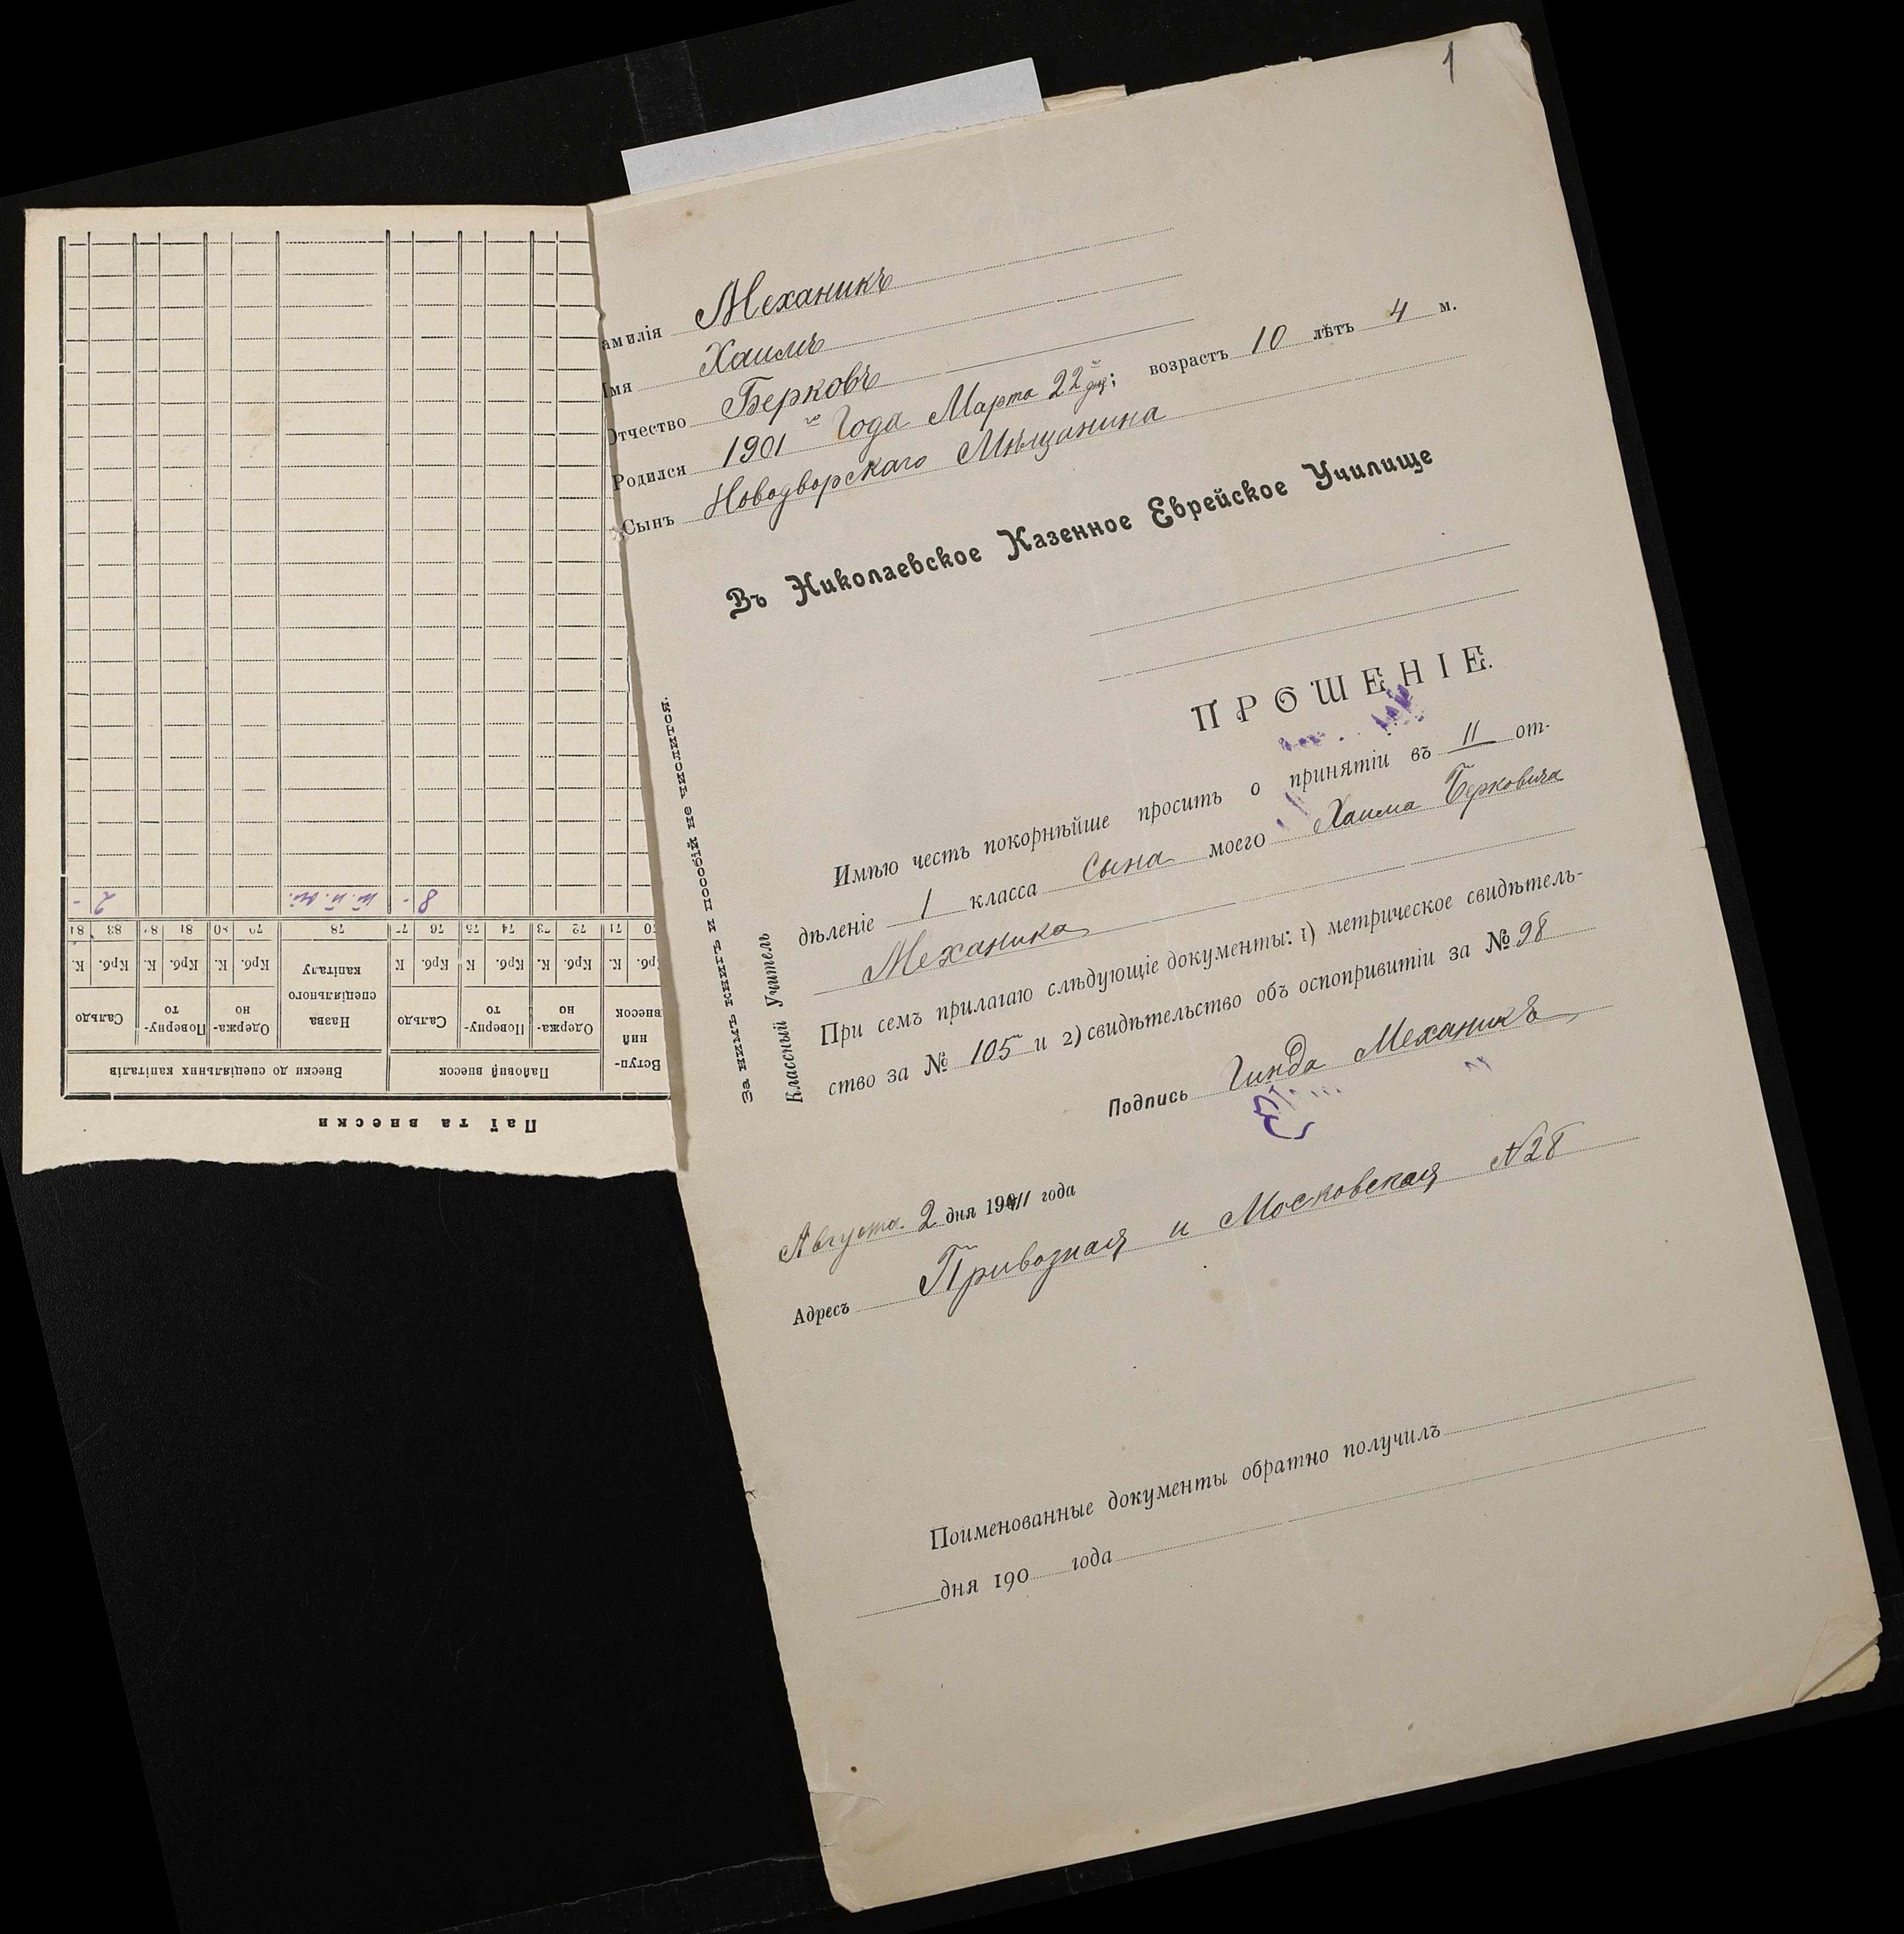 1
амилія Механикъ
Імя Хаимъ
Отчество Берковъ
Родился 1901 го Года Марта 22 дня; возрастъ 10 лѣтъ 4 м.
Сынъ Новодворскаго Мѣщанина
Въ Николаевское Казенное Еврейское Училище
ПРОШЕНІЕ.
Имѣю честь покорнѣйше просить о принятіи въ II от-
дѣленіе 1 класса сына моего Хаима Берковича
Механика
При семъ прилагаю слѣдующіе документы: 1) метрическое свидѣтель-
ство за № 105 и 2) свидѣтельство объ оспопривитіи за № 98
Подпись Гинда Механикъ
Августа 2 дня 1911 года
Адресъ Привозная и Московская N28
Поименованные документы обратно получилъ
дня 190 года
За нимъ книгъ и пособій не числится.
Классный Учитель
Паї та внески
Вступ-
ний
внесок
Пайовий внесок
Внески до спеціяльних капіталів
Одержа-
но
Поверну-
то
Сальдо
Назва
спеціяльного
капіталу
Одержа-
но
Поверну-
то
Сальдо
Крб. К. Крб. К. Крб. К. Крб. К Крб. К. Крб. К. Крб. К.
70 71 72 73 74 75 76 77 78 79 80 81 82 83 84
8 -
2 -